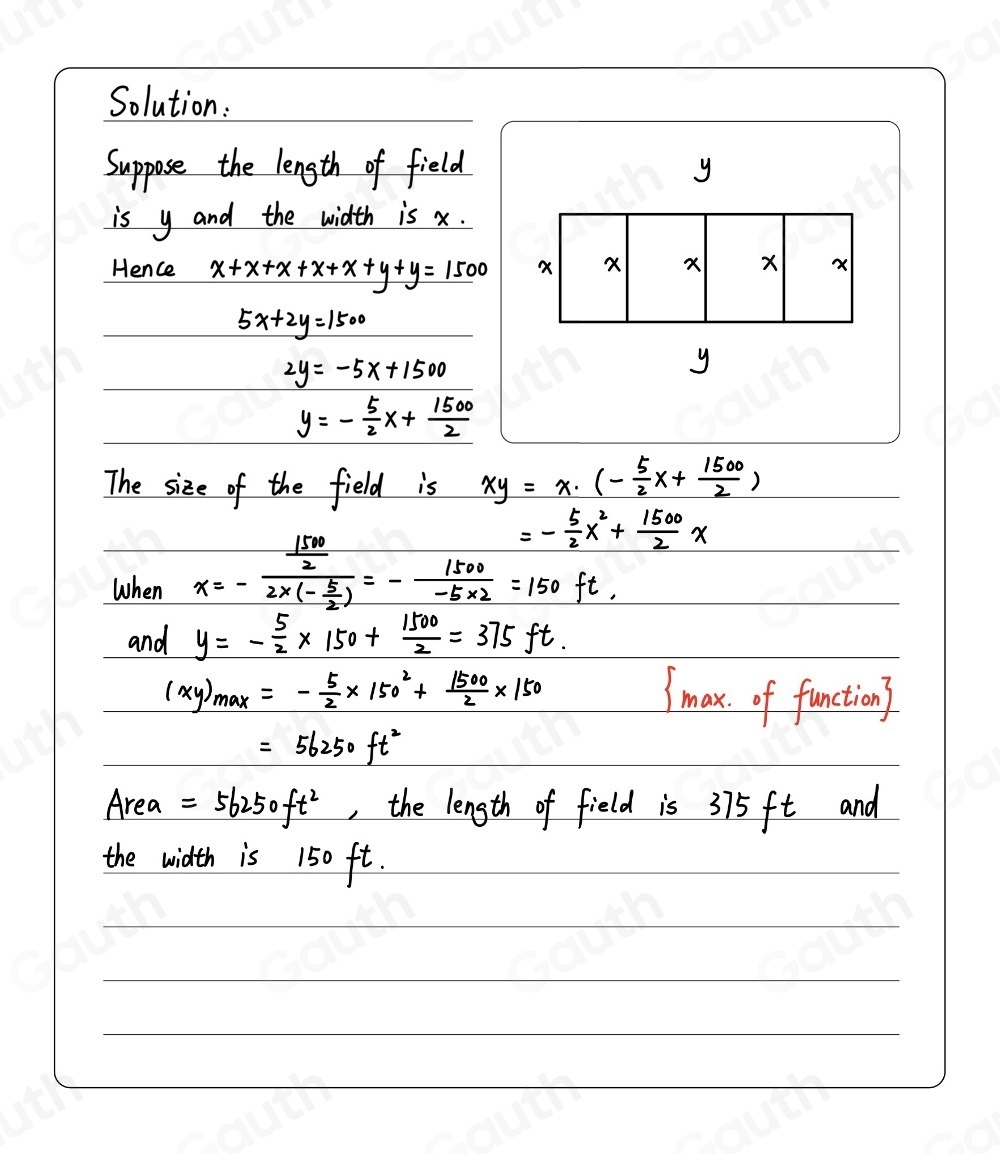 Solution:
Suppose the length of field
is y and the width is x.
Hence x+x+x+x+x+y+y=1500
5x+2y=1500
2y=-5x+1500
y=-5/2x+1500/2
y
x x x x x
y
The size of the field is xy = x·(-5/2x+1500/2)
=-5/2x²+1500/2x
When x=-(1500/2)/(2×(-5/2))=-1500/(-5×2)=150 ft,
and y=-5/2×150+1500/2=375 ft.
(xy)max = -5/2×150²+1500/2×150
{max. of function}
= 56250 ft²
Area = 56250ft², the length of field is 375 ft and
the width is 150 ft.
Gauth